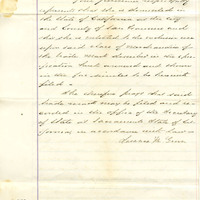 respectfully
represent that she is domiciled in
the State of California in the City
and County of San Francisco and
that she is entitled to the exclusive use
upon said class of merchandise of
the trade mark described in the spe-
cification hereto annexed and shown
in the fac-similes to be herewith
filed.
She therefore prays that said
trade mark may be filed and re-
corded in the office of the Secretary
of State at Sacramento State of Cal-
ifornia in accordance with law.